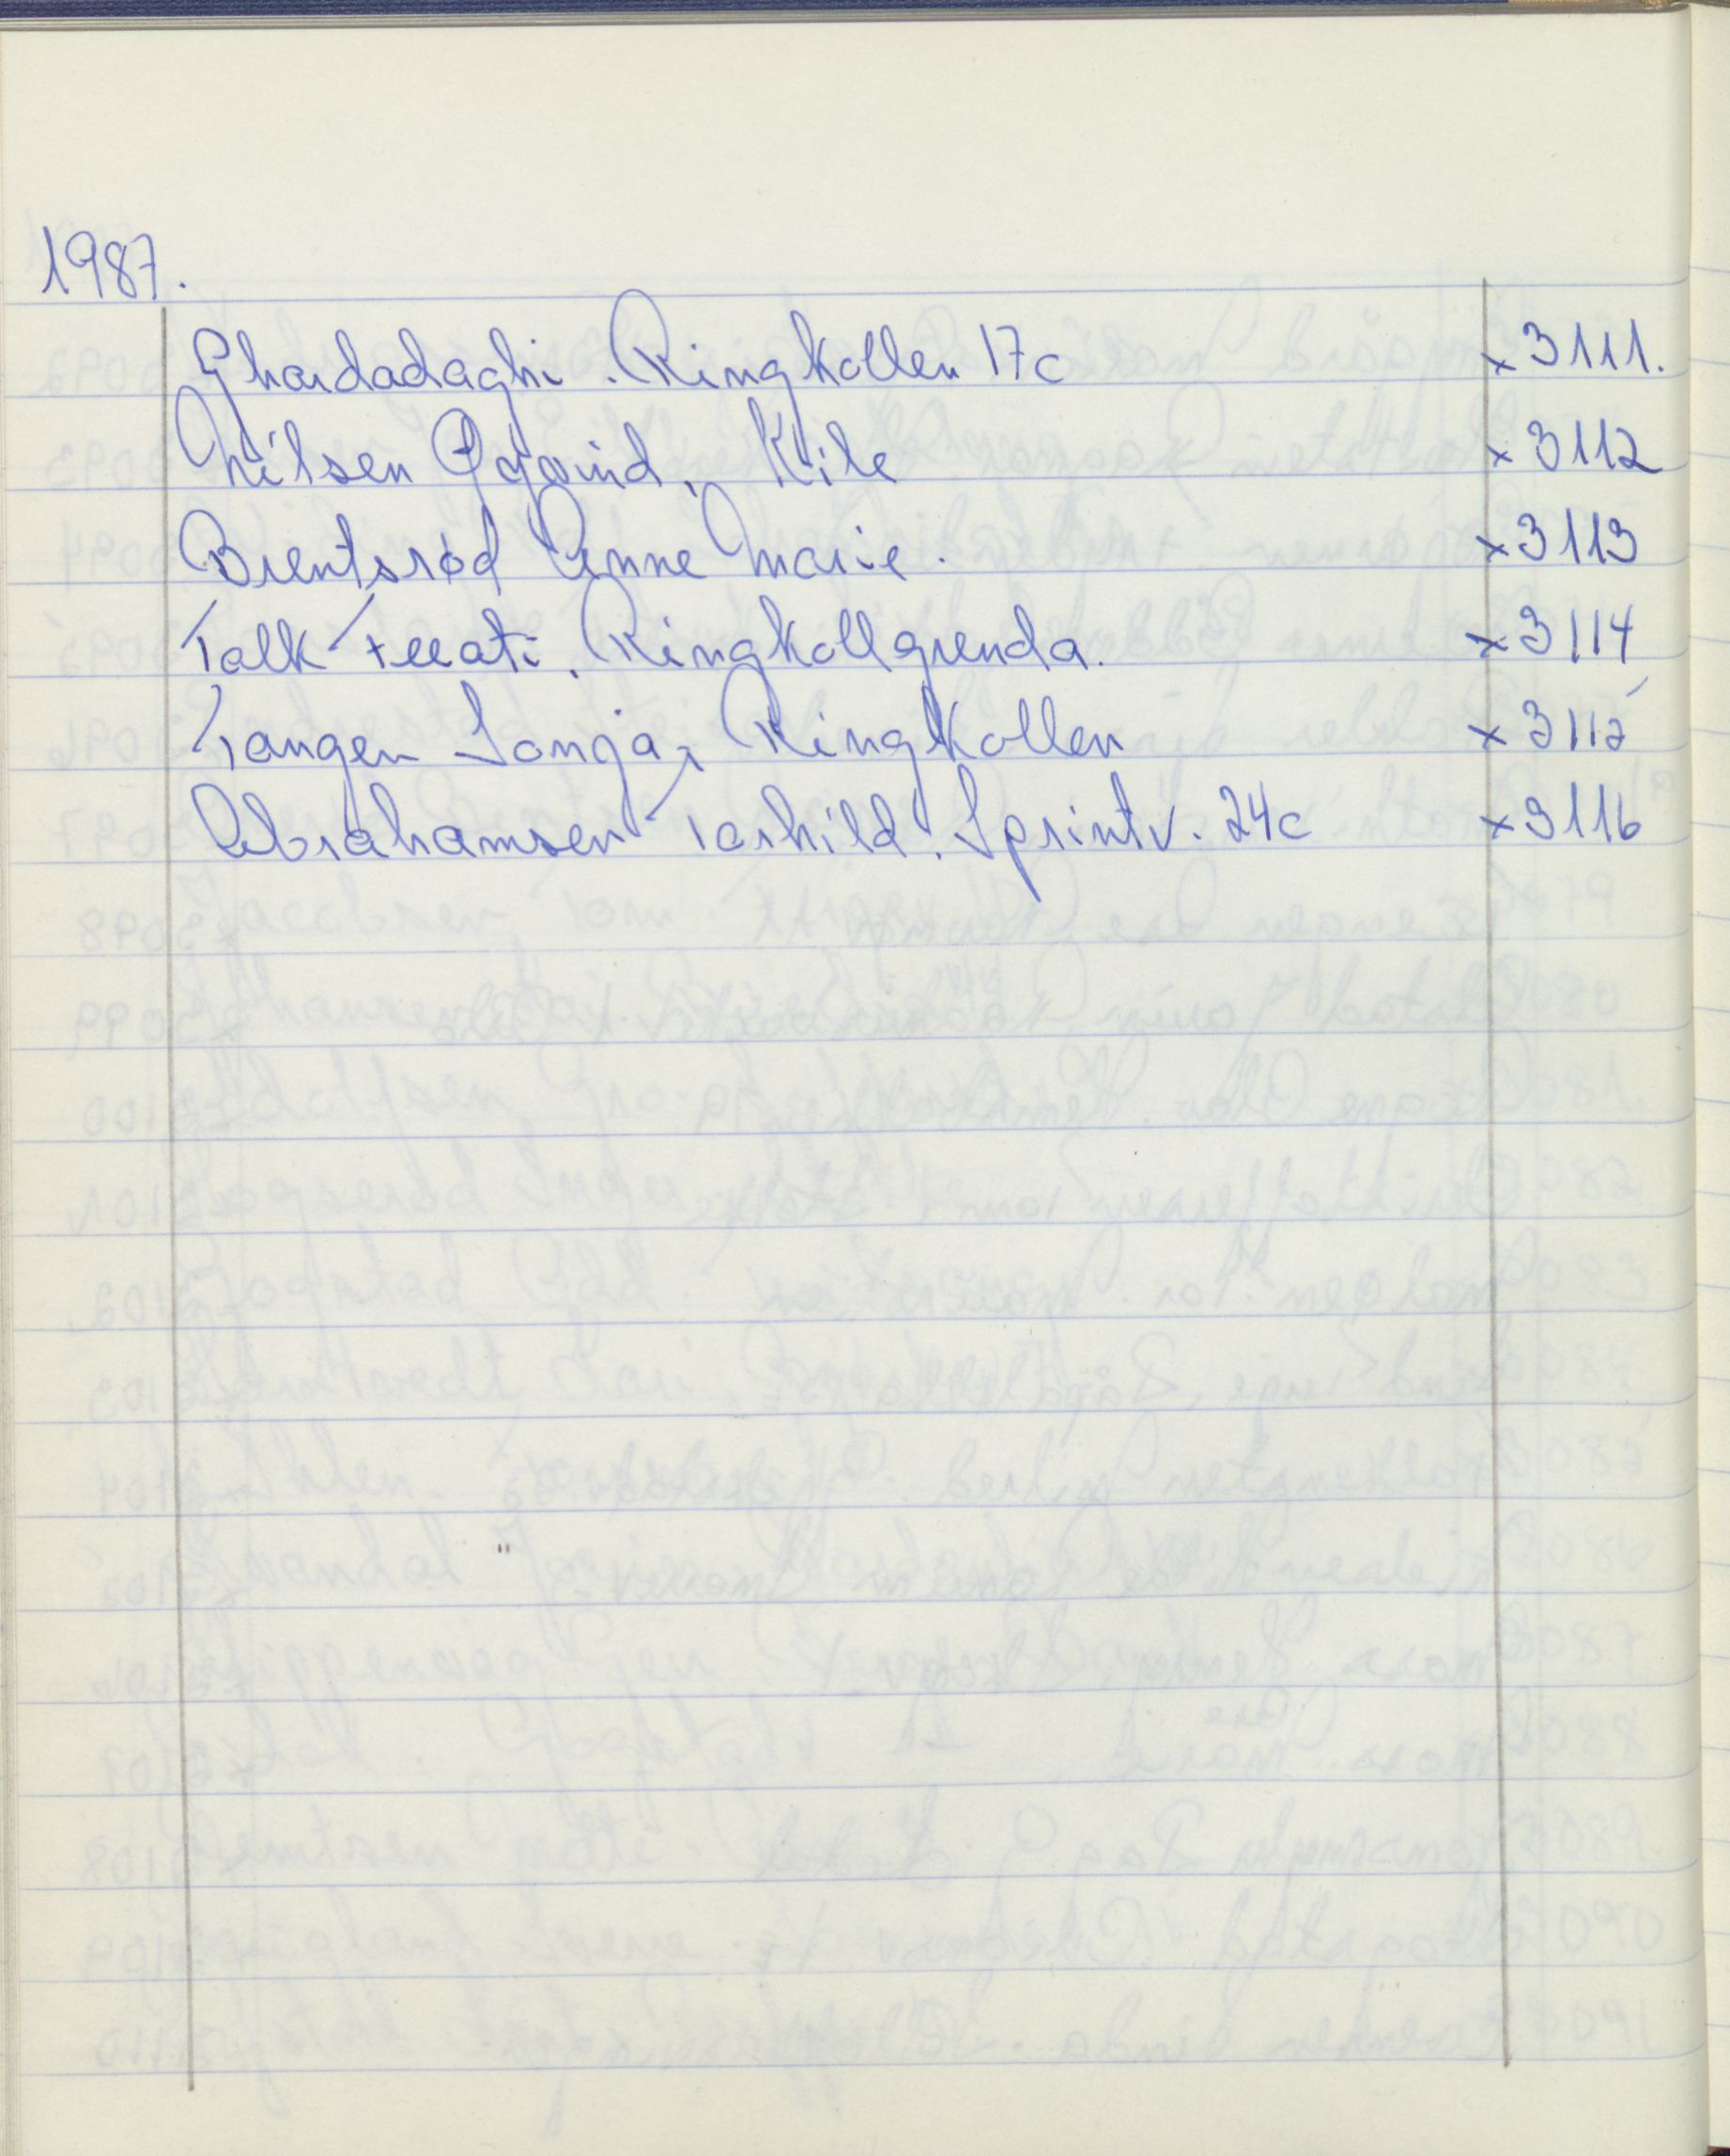 1987.
Ghardadaghi. Ringkollen 17c x 3111.
Nilsen Øyvind, Kile x 3112
Brentsrød Anne Marie. x 3113
Ringkollgrenda. x 3114
Tangen Sonja, Ringkollen x 3115
Abrahamsen Torhild. Sprintv. 24c x 3116